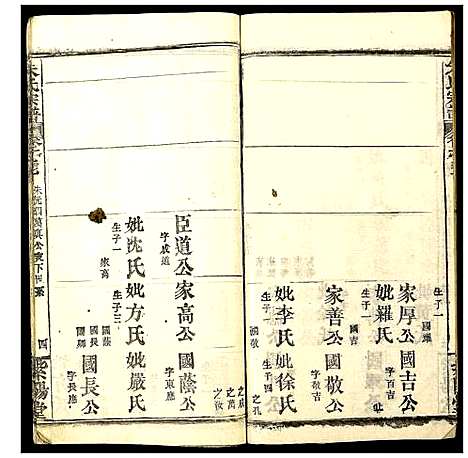 朱氏宗譜
生子一
國㻞
家厚公 國吉公
字百吉
妣羅氏
生子一
國吉
家善公 國敬公
字敬吉
之孔
妣李氏 妣徐氏
生子一
國敬
臣道公 家高公 國蔭公
字成道
字東應
之成
之萬
之汝
妣沈氏 妣方氏 妣嚴氏
生子一
家高
生子三
國蔭
國長
國卿
國長公
字長應
四
紫陽堂